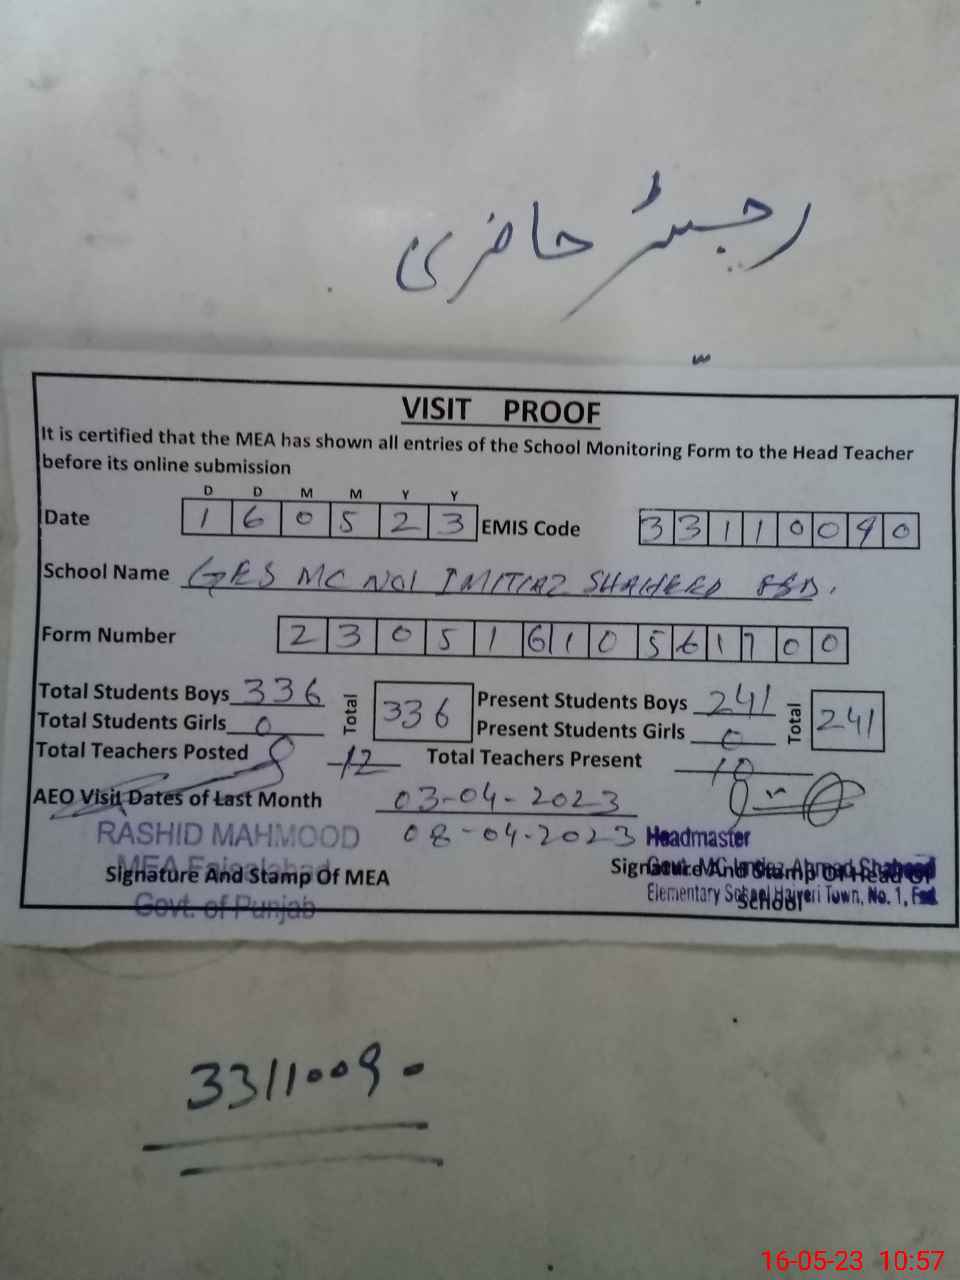 رجسٹر حاضری
VISIT PROOF
It is certified that the MEA has shown all entries of the School Monitoring Form to the Head Teacher
before its online submission
D D M M Y Y
Date 1 6 0 5 2 3 EMIS Code 3 3 1 1 0 0 9 0
School Name GES MC NO1 IMTIAZ SHAHEED FSD.
Form Number 2 3 0 5 1 6 1 0 5 6 1 7 0 0
Total Students Boys 336 Total 336 Present Students Boys 241 Total 241
Total Students Girls 0 Present Students Girls 0
Total Teachers Posted 12 Total Teachers Present 10
AEO Visit Dates of Last Month 03-04-2023
RASHID MAHMOOD 08-04-2023 Headmaster
MEA Faisalabad
Signature And Stamp Of MEA Signature And Stamp Of Head Of School
Govt. of Punjab Elementary School Hajveri Town, No. 1, Fsd.
33110090
16-05-23 10:57